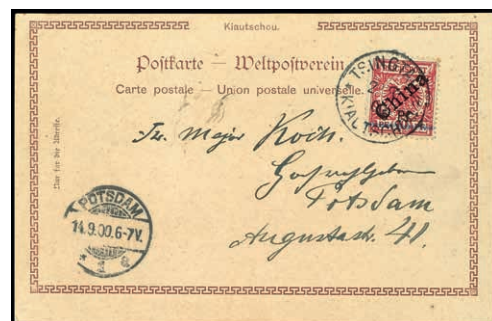 Kiautschou.
Postkarte — Weltpostverein
Carte postale — Union postale universelle.
China
TSINGTAU
KIAUTSCHOU
Nur für die Adresse.
Fr. Major Koch.
Potsdam
Augustastr. 41.
POTSDAM
14.9.00.6-7V.